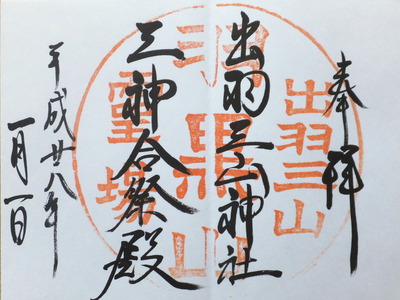 奉拝
出羽三山
出羽三山神社
羽黒山
三神合祭殿
平成廿八年
一月一日